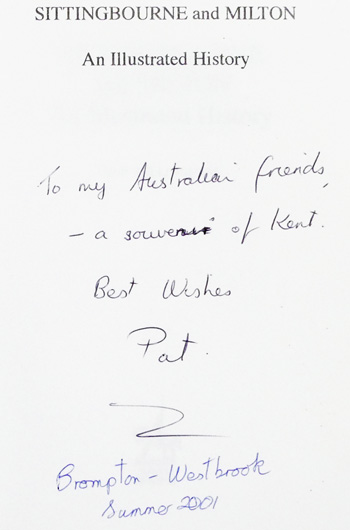 SITTINGBOURNE and MILTON
An Illustrated History
To my Australian friends,
- a souvenir of Kent.
Best Wishes
Pat.
Brompton - Westbrook
Summer 2001